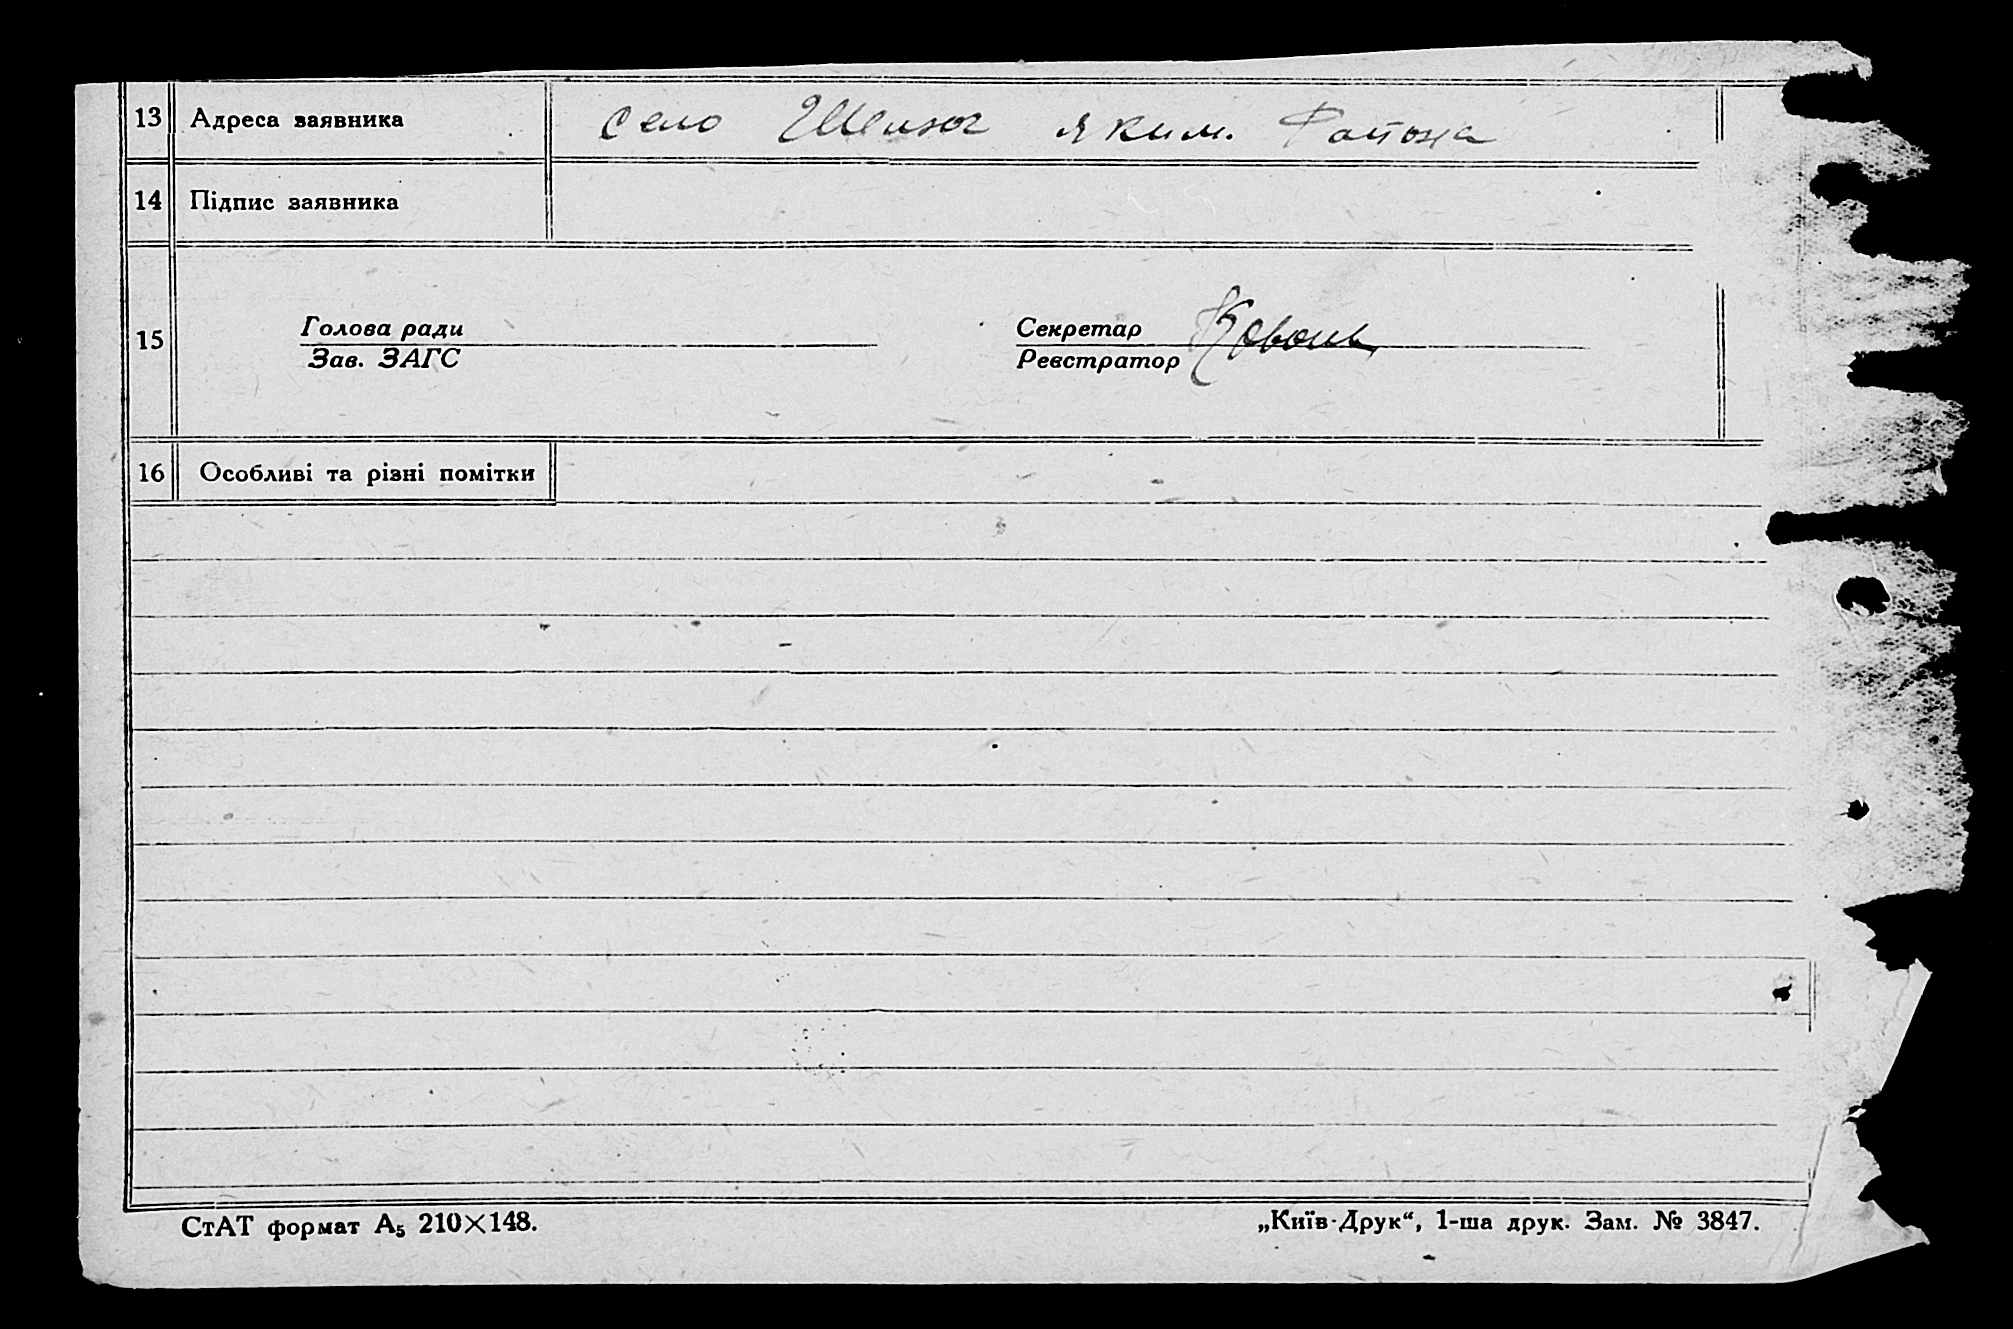 13 Адреса заявника село Шелюг яким. района
14 Підпис заявника
15
Голова ради Секретар
Зав. ЗАГС Реєстратор
16 Особливі та різні помітки
СтАТ формат А5 210×148. „Київ-Друк“, 1-ша друк. Зам. № 3847.